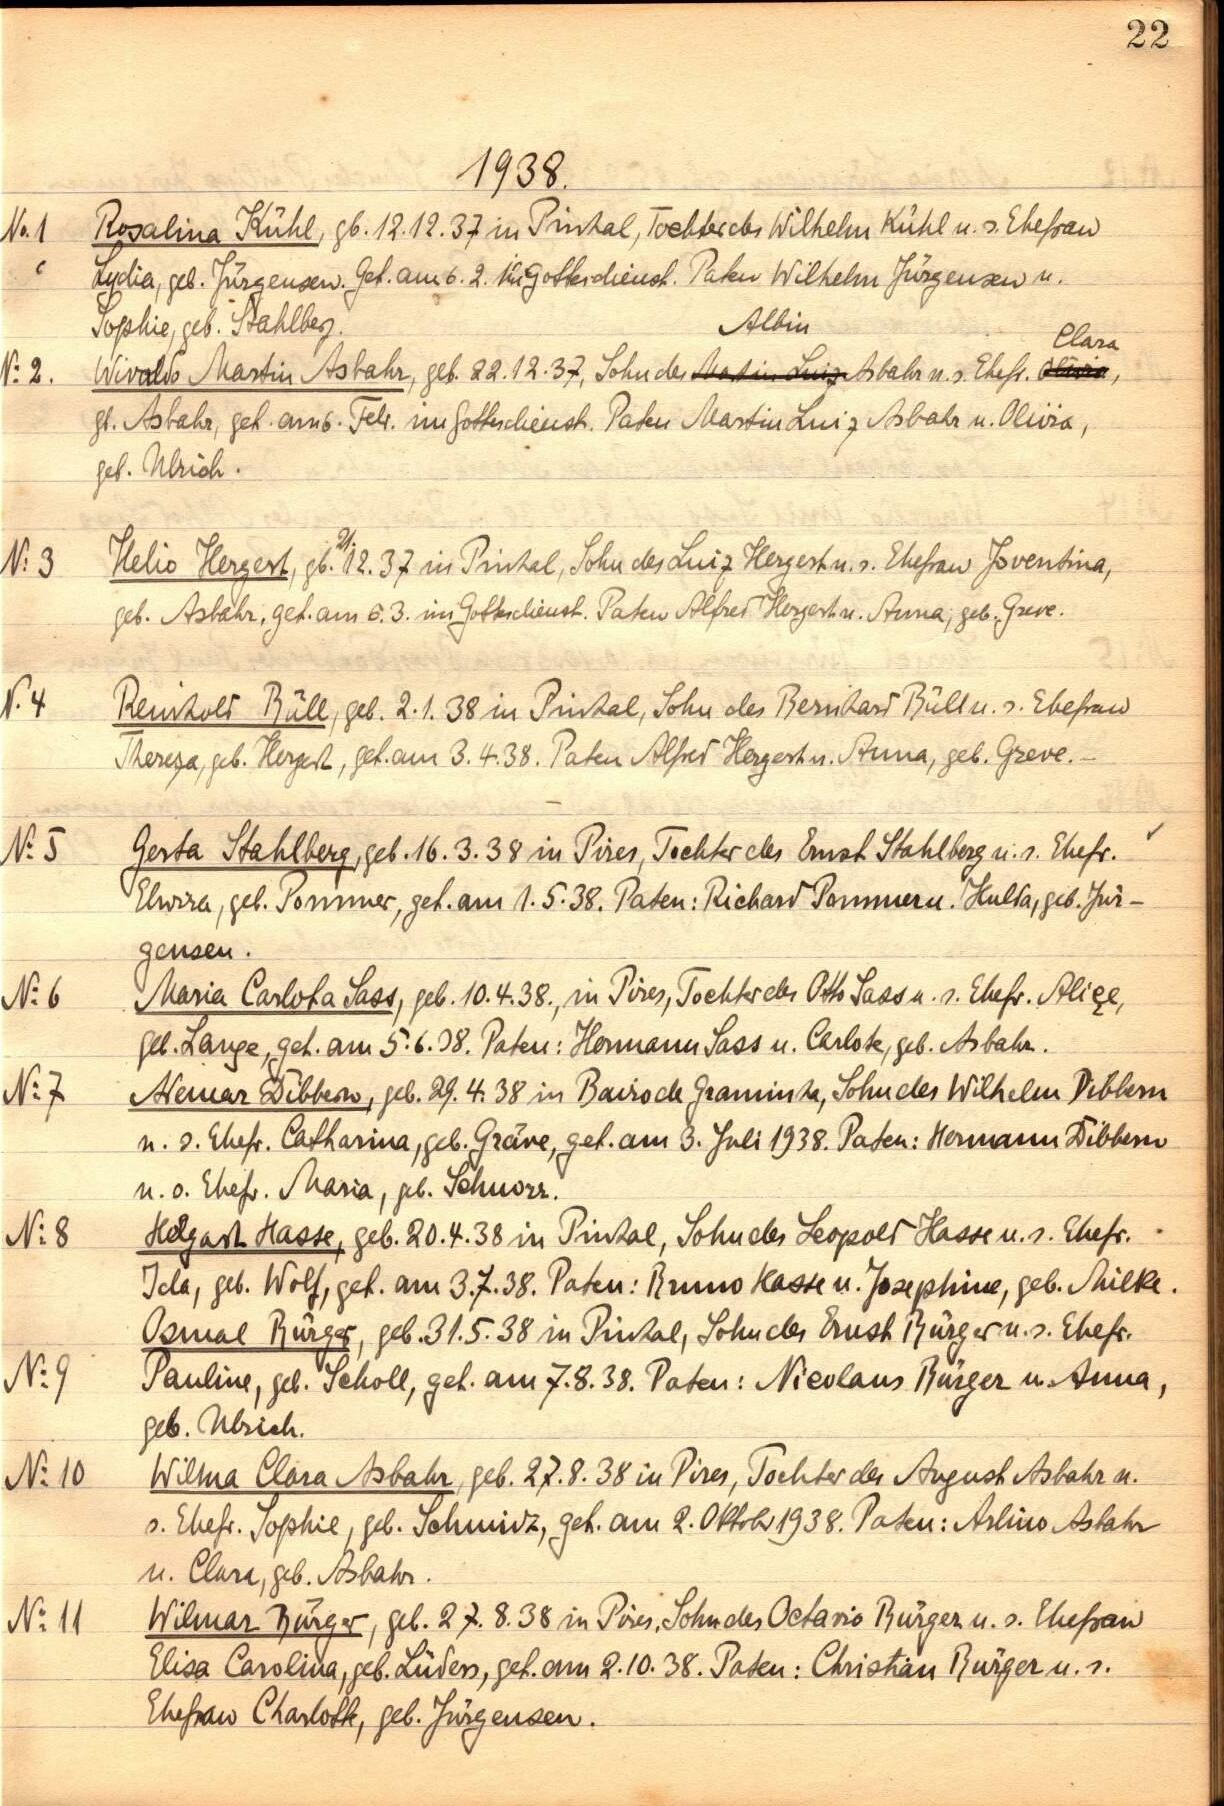 22
1938.
No. 1 Rosalina Kühl, gb. 12.12.37 in Pinhal, Tochter des Wilhelm Kühl u. s. Ehefrau
Lydia, geb. Jürgensen. Get. am 6. 2. im Gottesdienst. Paten Wilhelm Jürgensen u.
Sophie, geb. Stahlberg.
Albin Clara
No. 2. Wivaldo Martin Asbahr, geb. 22.12.37, Sohn des Martin Luiz Asbahr u. s. Ehefr. Olivia,
gb. Asbahr, get. am 6. Febr. im Gottesdienst. Paten Martin Luiz Asbahr u. Olivia,
geb. Ulrich.
21.
No. 3 Helio Hergert, gb. 12.37 in Pinhal, Sohn des Luiz Hergert u. s. Ehefrau Joventina,
geb. Asbahr, get. am 6.3. im Gottesdienst. Paten Alfred Hergert u. Anna, geb. Greve.
N. 4 Reinhold Büll, geb. 2.1.38 in Pinhal, Sohn des Bernhard Büll u. s. Ehefrau
Thereza, geb. Hergert, get. am 3.4.38. Paten Alfred Hergert u. Anna, geb. Greve. –
No. 5 Gerta Stahlberg, geb. 16.3.38 in Pires, Tochter des Ernst Stahlberg u. s. Ehefr.
Elwira, geb. Pommer, get. am 1.5.38. Paten: Richard Pommer u. Hulda, geb. Jür-
gensen.
No. 6 Maria Carlota Sass, geb. 10.4.38., in Pires, Tochter des Otto Sass u. s. Ehefr. Alice,
geb. Lange, get. am 5.6.38. Paten: Hermann Sass u. Carlote, geb. Asbahr.
No. 7 Ademar Dibbern, geb. 29.4.38 in Bairo de Graminha, Sohn des Wilhelm Dibbern
u. s. Ehefr. Catharina, geb. Gräve, get. am 3. Juli 1938. Paten: Hermann Dibbern
u. s. Ehefr. Maria, geb. Schnorr.
No. 8 Helgart Hasse, geb. 20.4.38 in Pinhal, Sohn des Leopold Hasse u. s. Ehefr.
Ida, geb. Wolf, get. am 3.7.38. Paten: Bruno Hasse u. Josephine, geb. Milke.
Osmal Bürger, geb. 31.5.38 in Pinhal, Sohn des Ernst Bürger u. s. Ehefr.
No. 9 Pauline, geb. Scholl, get. am 7.8.38. Paten: Nicolaus Bürger u. Anna,
geb. Ulrich.
No. 10 Wilma Clara Asbahr, geb. 27.8.38 in Pires, Tochter des August Asbahr u.
s. Ehefr. Sophie, geb. Schmidt, get. am 2. Oktobr 1938. Paten: Arlino Asbahr
u. Clara, geb. Asbahr.
No. 11 Wilmar Bürger, geb. 27.8.38 in Pires, Sohn des Octavio Bürger u. s. Ehefrau
Elisa Carolina, geb. Lüders, get. am 2.10.38. Paten: Christian Bürger u. s.
Ehefrau Charlotte, geb. Jürgensen.